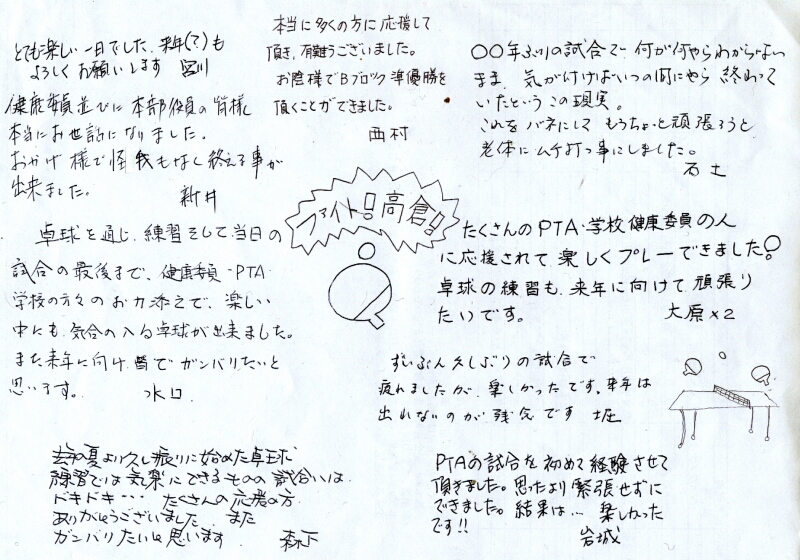 とても楽しい一日でした。来年(?)も
よろしくお願いします 宮川
健康委員並びに本部役員の皆様
本当にお世話になりました。
おかげ様で怪我もなし終える事が
出来ました。
新井
本当に多くの方に応援して
頂き、有難うございました。
お陰様でBブロック準優勝を
頂くことができました。
西村
〇〇年ぶりの試合で何が何やらわからない
まま、気が付けばいつの間にやら終わって
いたというこの現実。
これをバネにしてもうちょっと頑張ろうと
老体にムチ打つ事にしました。
石土
ファイト!!高倉!!
卓球を通じ、練習そして当日の
試合の最後まで、健康委員・PTA・
学校の方々のお力添えで、楽しい
中にも気合の入る卓球が出来ました。
また来年に向け皆でガンバリたいと
思います。 水口
たくさんのPTA・学校健康委員の人
に応援されて楽しくプレーできました!
卓球の練習も、来年に向けて頑張り
たいです。 大原×2
ずいぶん久しぶりの試合で
疲れましたが、楽しかったです。来年は
出れないのが残念です 堀
去年の夏より久し振りに始めた卓球
練習では気楽にできるものの試合は
ドキドキ… たくさんの応援の方
ありがとうございました また
ガンバリたいと思います 森下
PTAの試合を初めて経験させて
頂きました。思たより緊張せずに
できました。結果は… 楽しかった
です!!
岩城